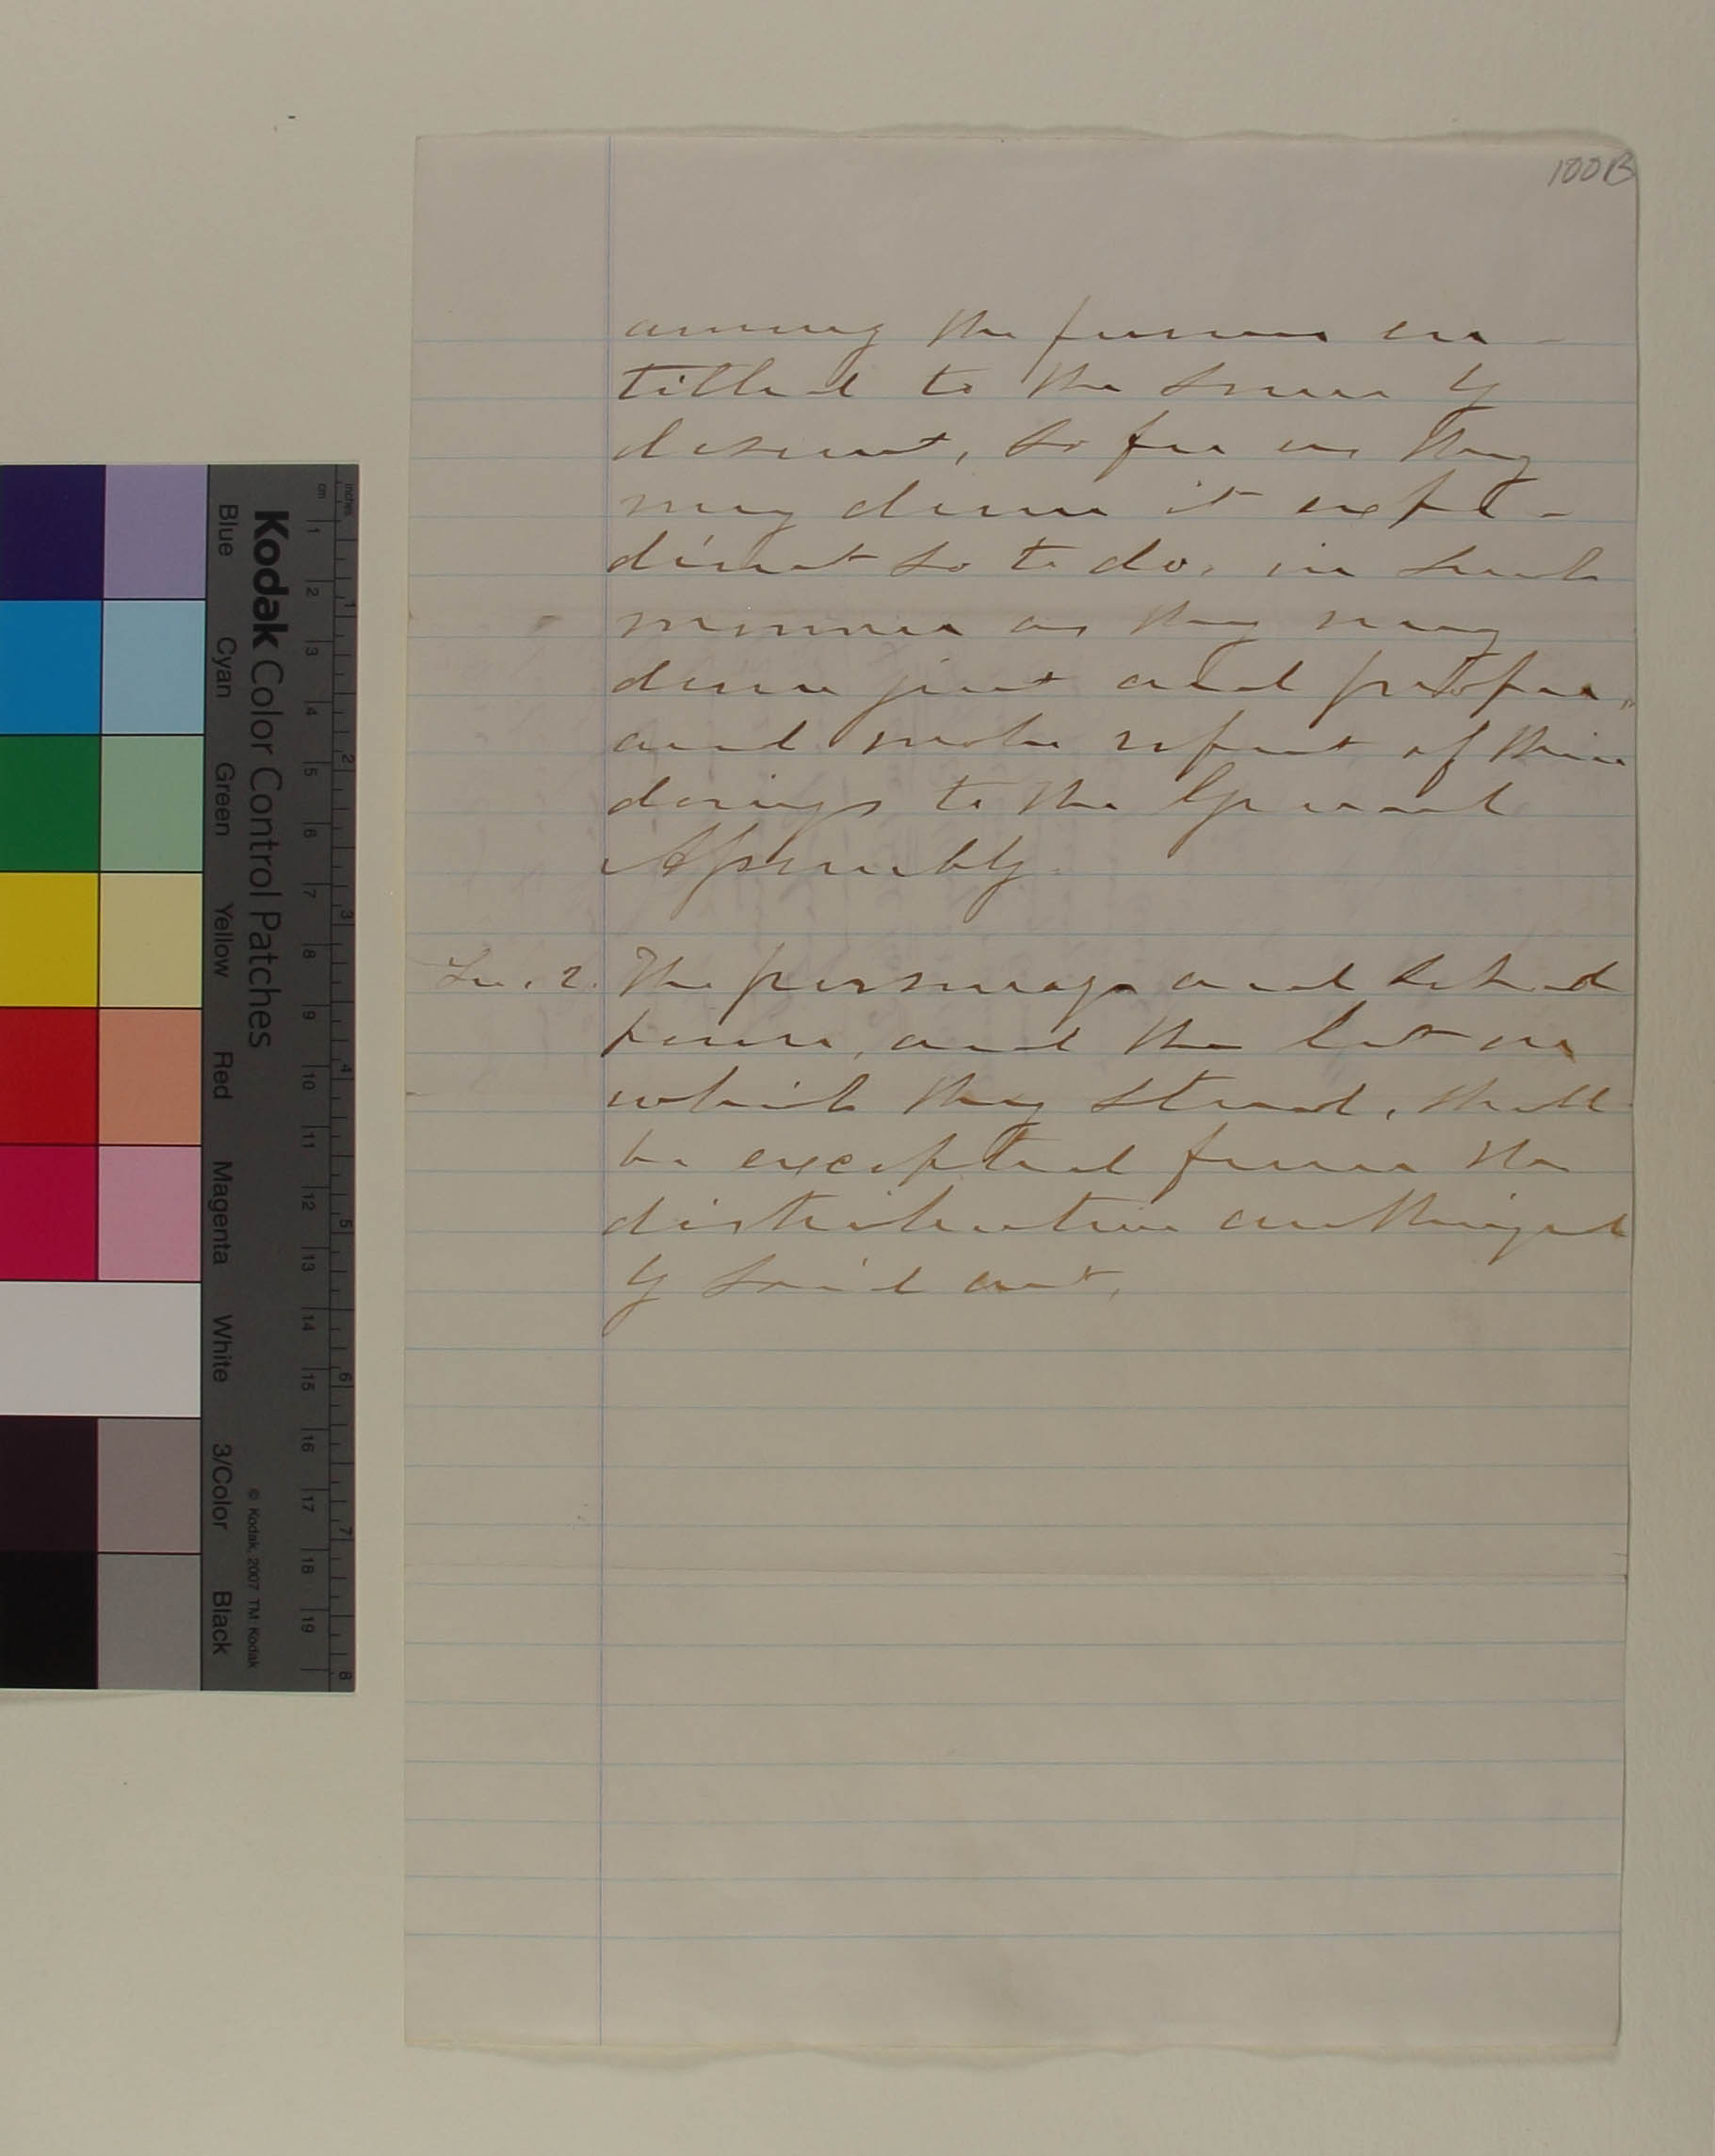 100B
among the persons en-
titled to the same by
descent, so far as they
may deem it expe-
dient so to do, in such
manner as they may
deem just and proper,
and make report of their
doings to the General
Assembly.
Sec. 2. The parsonage and school
house, and the lot on
which they stand, shall
be excepted from the
distribution authorized
by said act.
Kodak Color Control Patches
Blue Cyan Green Yellow Red Magenta White 3/Color Black
© Kodak, 2007 TM: Kodak
inches 1 2 3 4 5 6 7 8
cm 1 2 3 4 5 6 7 8 9 10 11 12 13 14 15 16 17 18 19